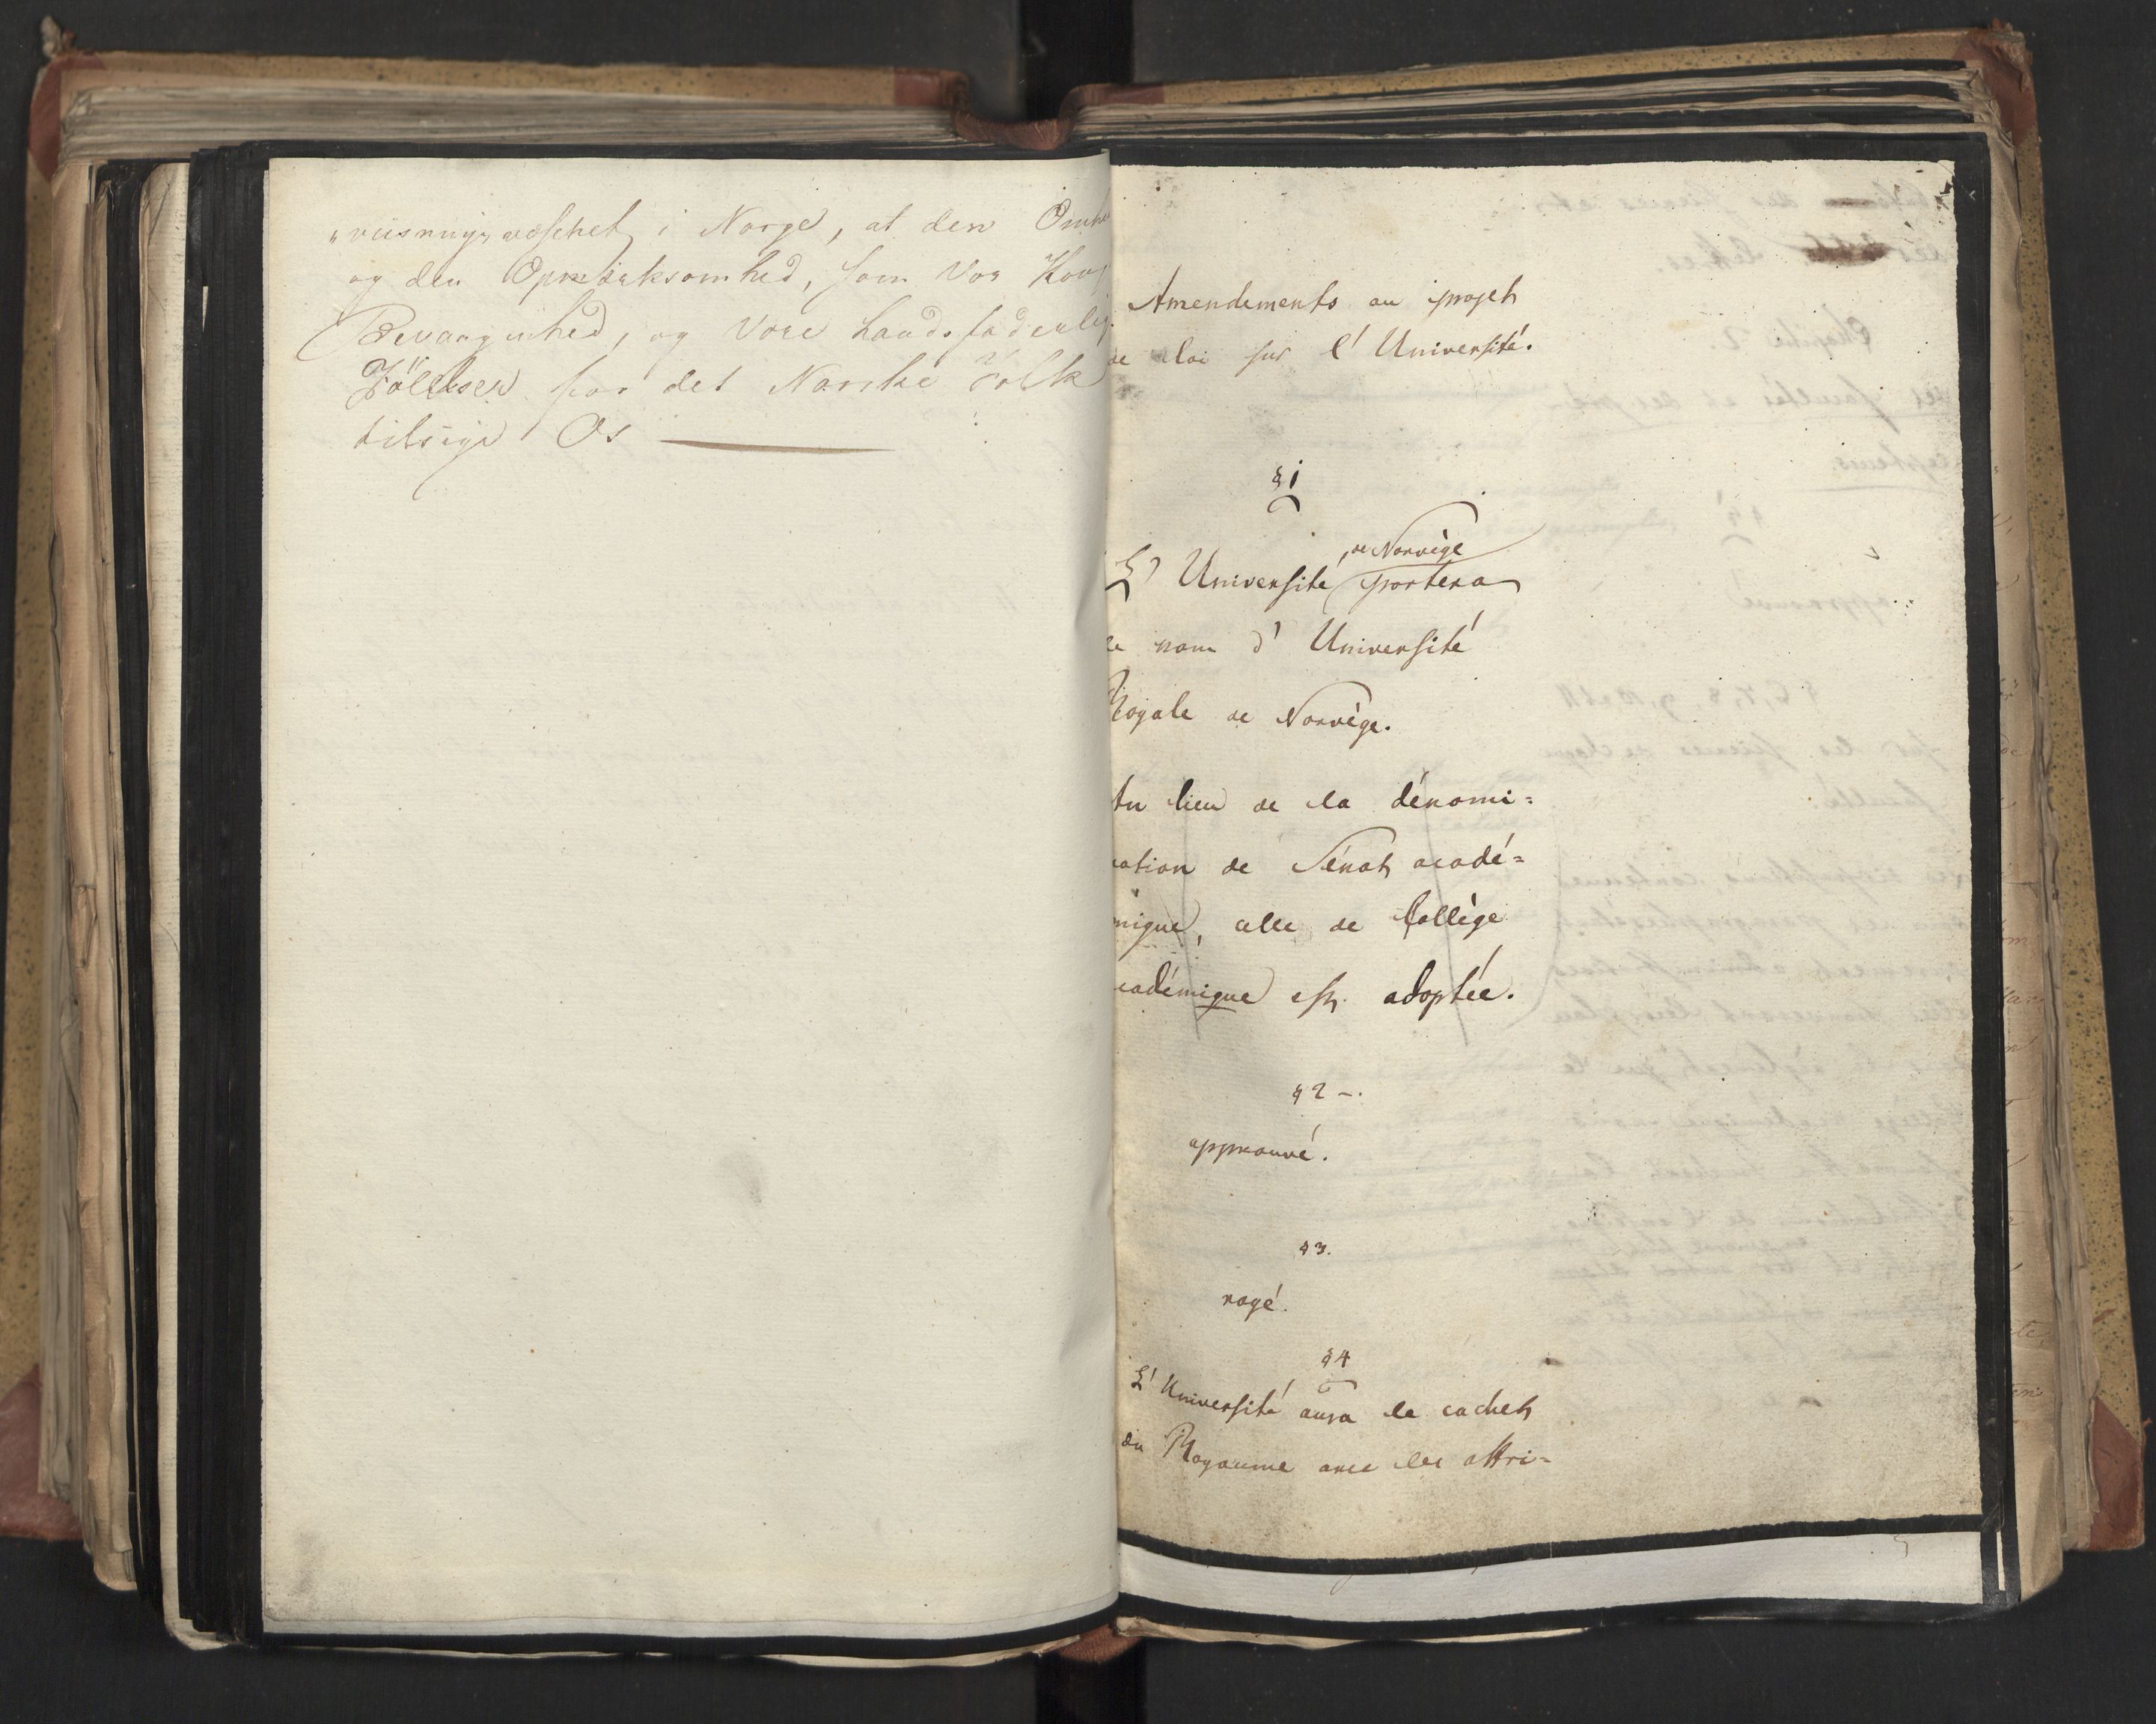 "viisningsvæsenet i Norge, at den
og den Opmærksomhed, som Vor
Bevaagenhed, og Vore Landsfaderlige
Følelser for det Norske Folk
tilsige Os
Amendements au projet
de loi sur l'Université.
§ 1
L'Université de Norvège portera
le nom d'Université
Royale de Norvège.
Au lieu de la dénomi=
nation de Sénat acadé=
mique, celle de Collège
académique est adoptée.
§ 2 -.
approuvé.
§ 3.
rayé.
§ 4
L'Université aura le cachet
du Royaume avec les attri=